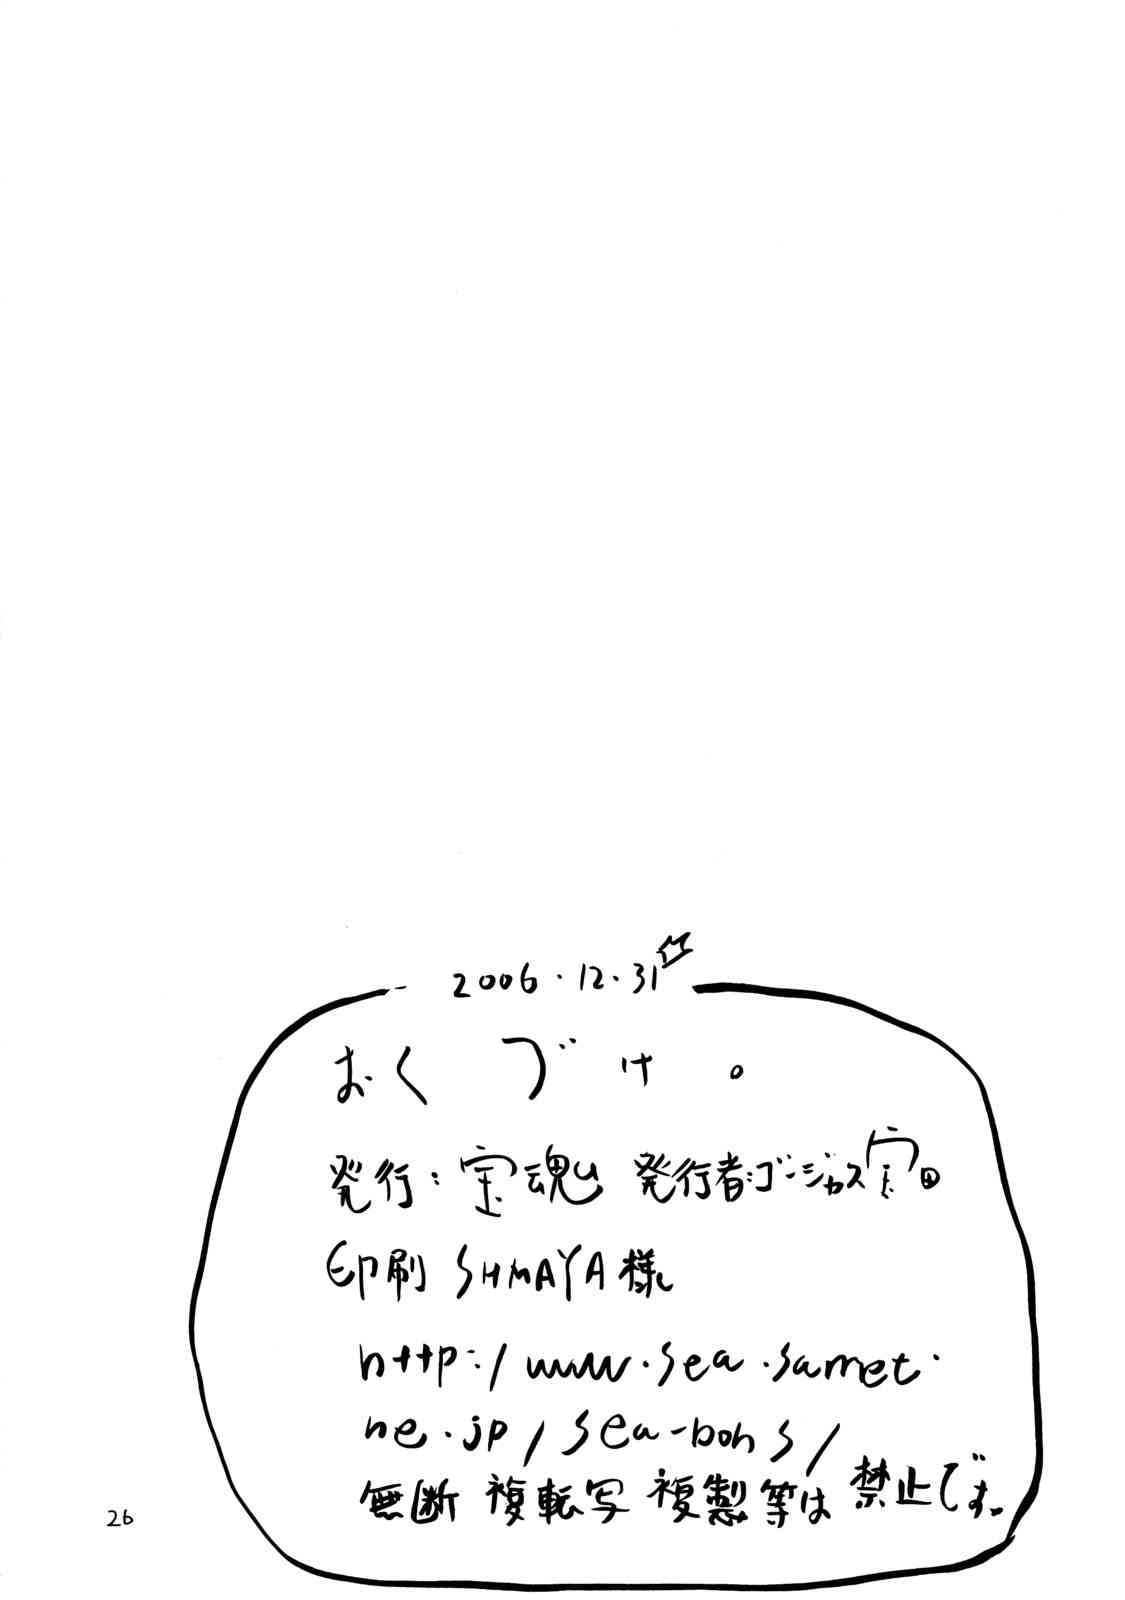 2006.12.31
おくづけ。
発行:宝魂 発行者:ゴージャス宝田
印刷 SHMAYA様
http:/www.sea.sannet.
ne.jp/sea-bohs/
無断 複転写 複製等は禁止です。
26